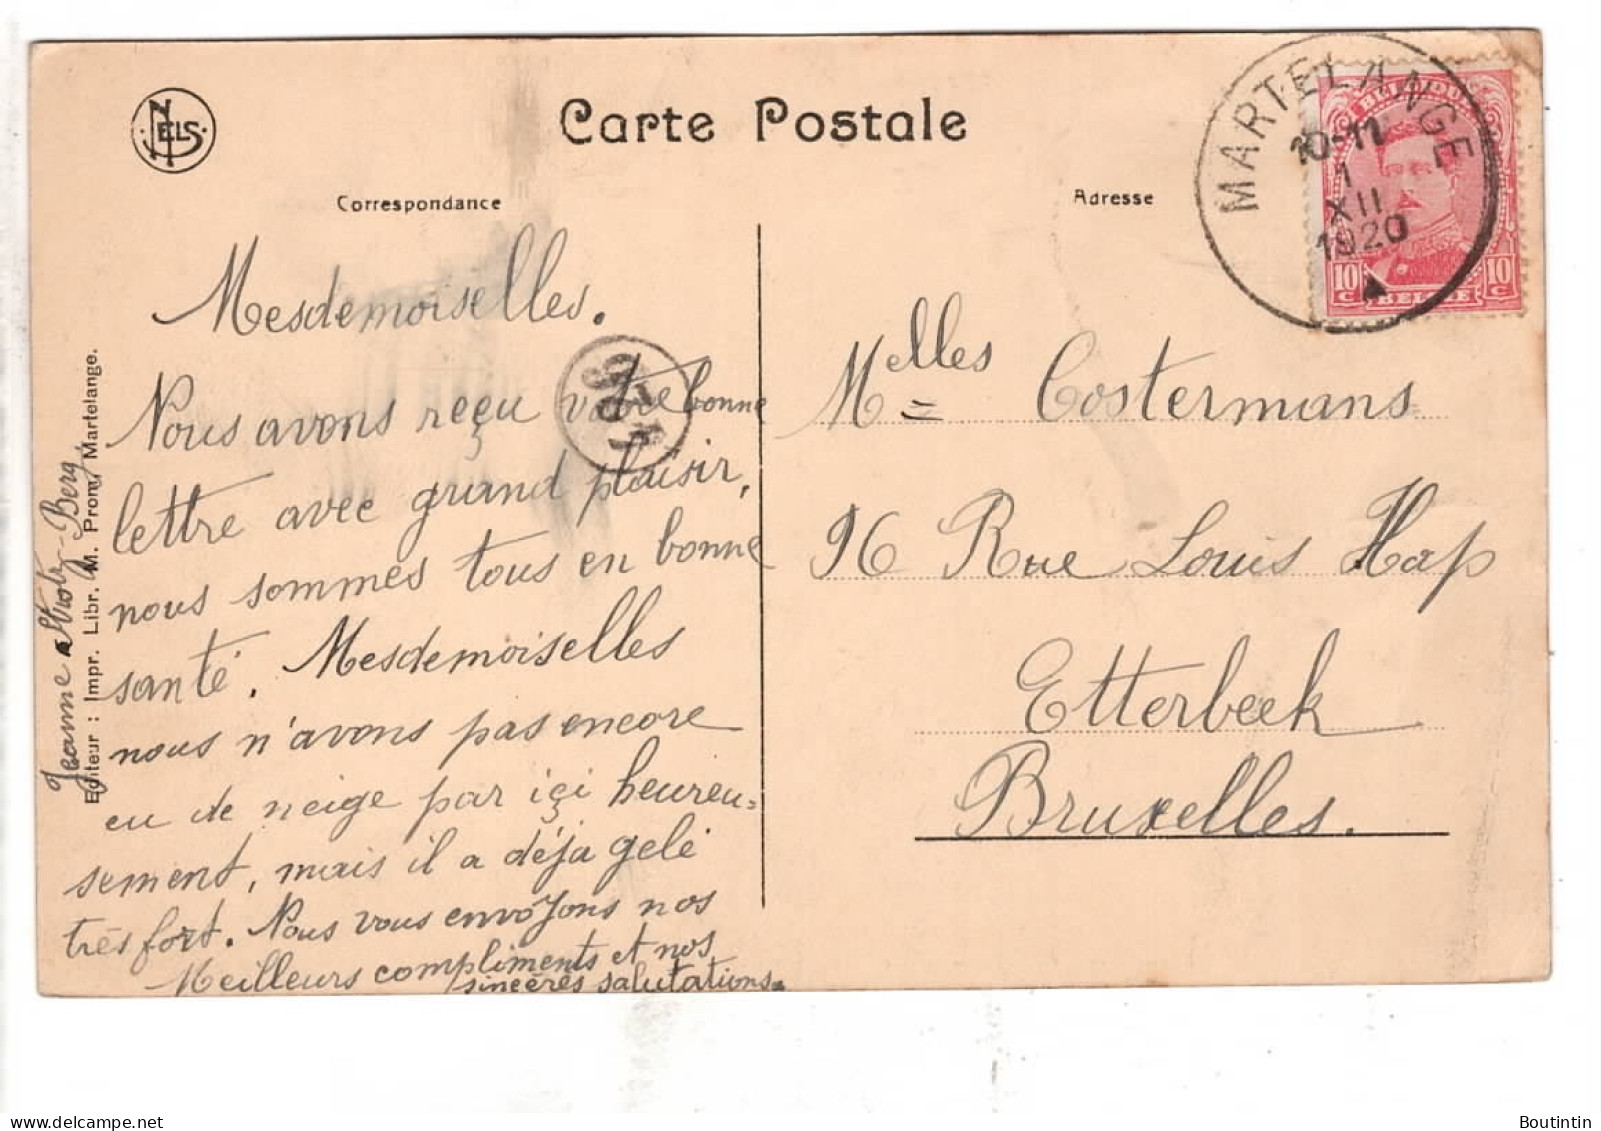 NELS
Carte Postale
Correspondance
Adresse
MARTELANGE
10-11
1
XII
1920
BELGIQUE
10 C
BELGIE
10 C
Mesdemoiselles.
Nous avons reçu votre bonne
lettre avec grand plaisir,
nous sommes tous en bonne
santé. Mesdemoiselles
nous n'avons pas encore
eu de neige par içi heureu=
sement, mais il a déja gelé
très fort. Nous vous envoyons nos
Meilleurs compliments et nos
sincères salutations.
Jeanne Berg
Editeur : Impr. Libr. M. Prom, Martelange.
Melles Costermans
96 Rue Louis Hap
Etterbeek
Bruxelles.
Boutintin
delcampe.net